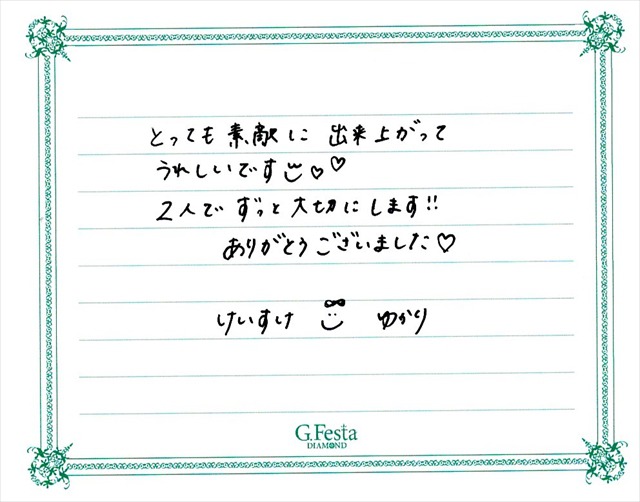 とっても素敵に 出来上がって
うれしいです♡♡
2人で ずっと大切にします!!
ありがとうございました♡
けいすけ ゆかり
G.Festa
DIAMOND